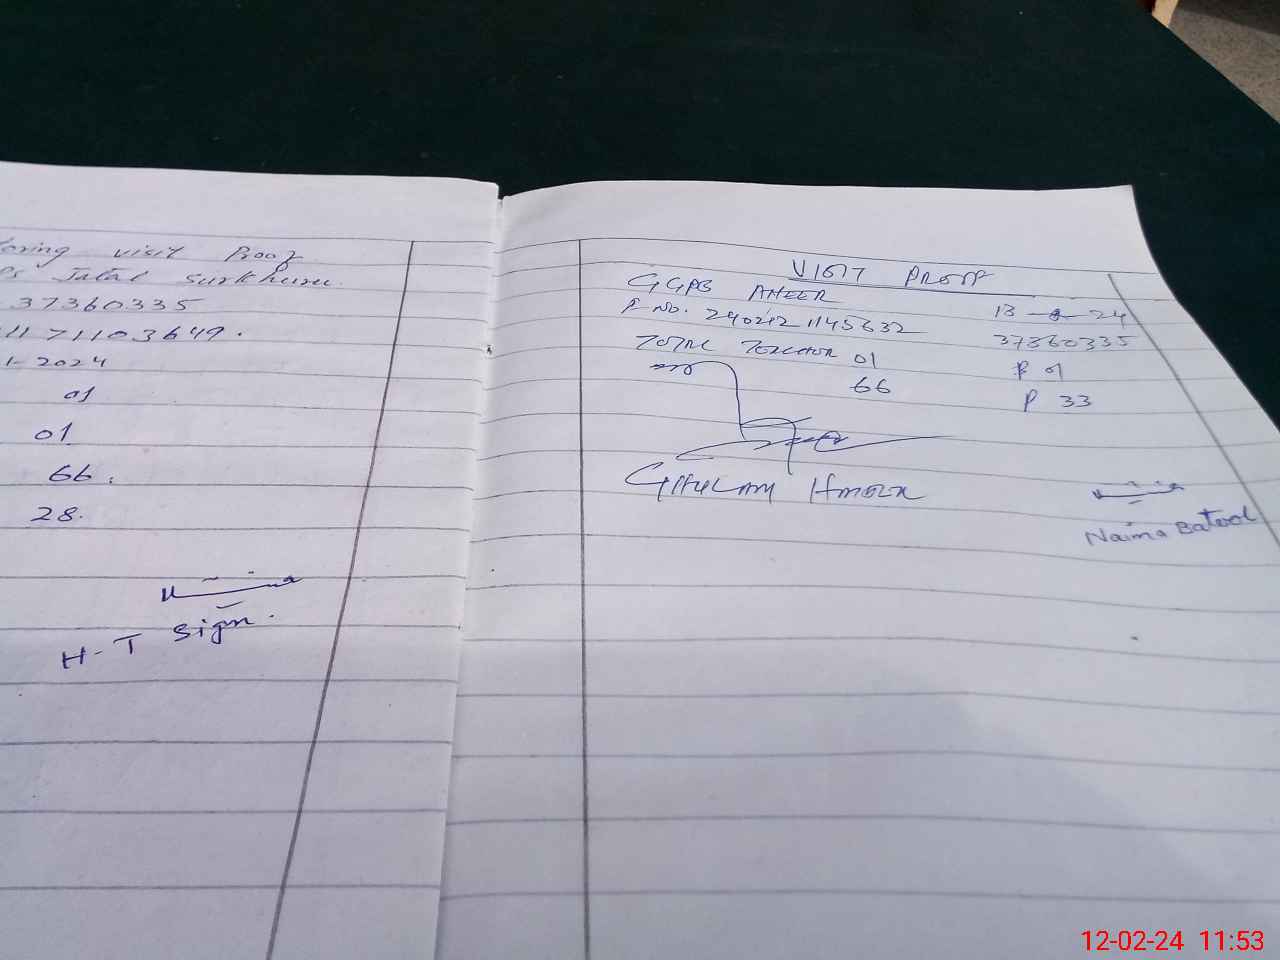 visit Proof
Jalal Surkhuru.
37360335
1171103649.
1-2024
01
01
66.
28.
H-T Sign.
VISIT PROOF
GGPS AHEER
P NO. 240212 1145632
24
37360335
TOTAL TEACHER 01
P 01
66
P 33
GHULAM
Naima Batool
12-02-24 11:53